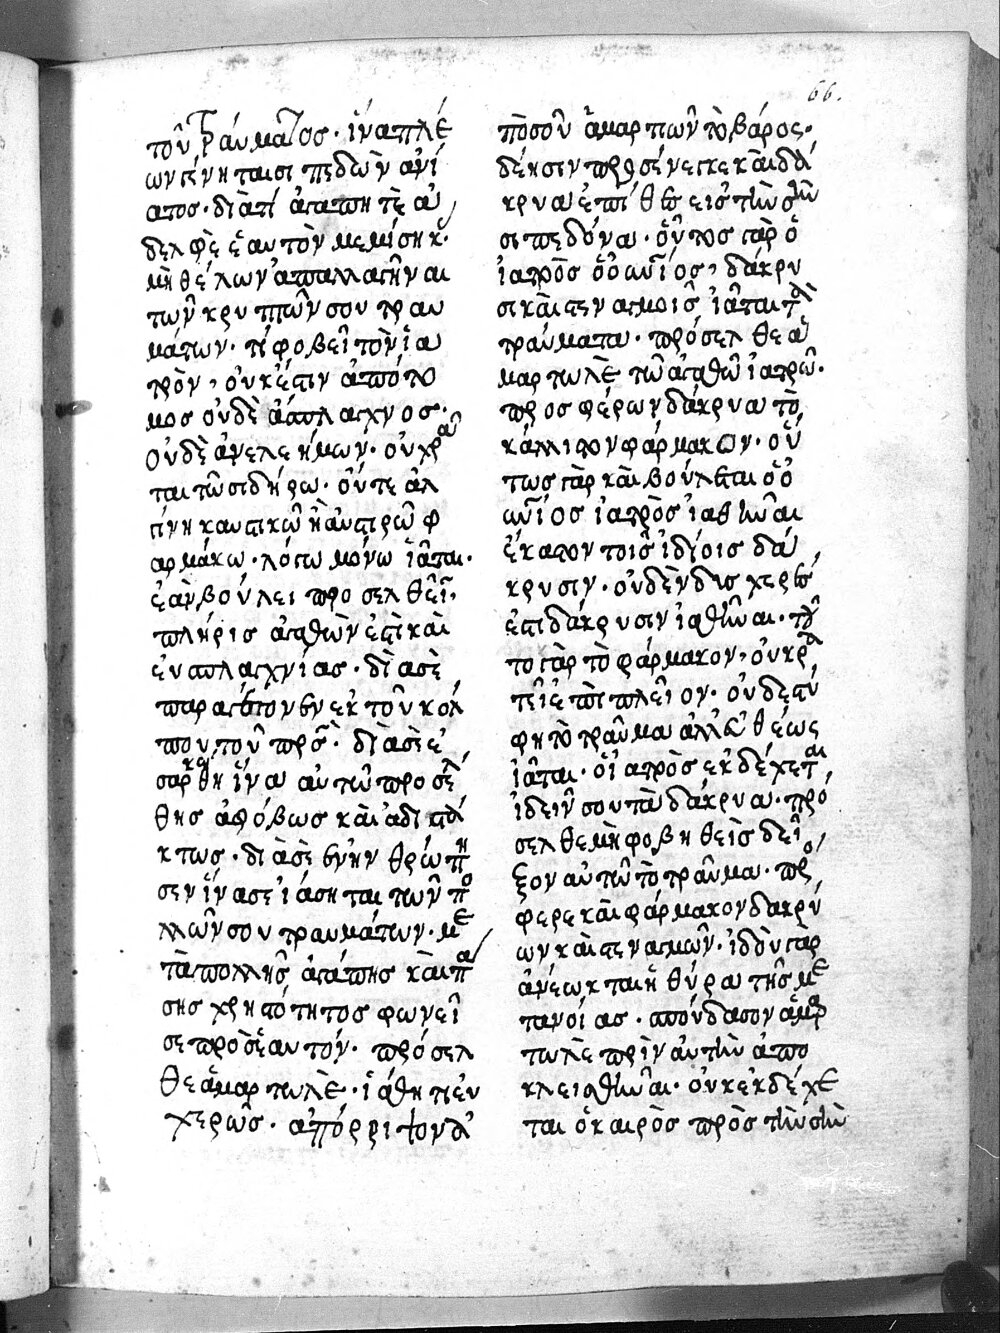 66.
τοῦ τραύματος· ἵνα πλέ
ον γένηται σιπεδὼν ἀνί
ατος· διατί ἀγαπητὲ ἀ
δελφὲ ἑαυτὸν μεμίσηκ
μὴ θέλων ἀπαλλαγῆναι
τῶν κρυπτῶν σου τραυ
μάτων· τί φοβεῖ τὸν ἰα
τρὸν, οὐκ ἔστιν ἀπότο
μος οὐδὲ ἄσπλαγχνος·
οὐδὲ ἀνελεήμων· οὐ χρᾶ
ται τῶ σιδήρω· οὔτε ἀλ
γίνη καυστικῶ ἢ αὐστιρῶ φ
αρμάκω· λόγω μόνω ἰᾶται·
ἐὰν βούλει προσελθεῖν·
πλήρις ἀγαθῶν ἐστὶ καὶ
εὐσπλαγχνίας· διὰ σὲ
παραγέγονεν ἐκ τοῦ κόλ
που τοῦ πρς· διὰ σὲ ἐ
σαρκώθη ἵνα αὐτῶ προσέλ
θης ἀφόβως καὶ ἀδιστά
κτως· διὰ σὲ ἐνηνθρώπη
σεν ἵνα σε ἰάσηται τῶν πο
λλῶν σου τραυμάτων· με
τὰ πολλῆς ἀγάπης καὶ πά
σης χρηστότητος φωνεῖ
σε πρὸς ἑαυτόν· πρόσελ
θε ἁμαρτωλὲ· ἰάθητι εὐ
χερῶς· ἀπόρριψον ἀ
πὸ σοῦ ἁμαρτιῶν τὸ βάρος·
δέησιν προσένεγκε καὶ δά
κρυα ἐπίθες εἰς τὴν σὴν
σιπεδόνα· οὗτος γὰρ ὁ
ἰατρὸς ὁ οὐνιος, δάκρυ
σι καὶ στεναγμοῖς ἰᾶται τὰ
τραύματα· πρόσελθε ἁ
μαρτωλὲ τῶ ἀγαθῶ ἰατρῶ·
προσφέρων δάκρυα τὸ
κάλλιστον φάρμακον· οὕ
τως γὰρ καὶ βούλεται ὁ ὀ
υνιος ἰατρὸς ἰαθῆναι
ἕκαστον τοῖς ἰδίοις δά
κρυσιν· οὐδὲν δυσχερὲς
ἐστι δάκρυσιν ἰαθῆναι· τοῦ
το γὰρ τὸ φάρμακον, οὐ κρα
τεῖ ἐπι πλεῖον· οὐδὲ στύ
φη τὸ τραῦμα ἀλλ' εὐθέως
ἰᾶται· ὁ ἰατρὸς ἐκδέχεται
ἰδεῖν σου τὰ δάκρυα· πρό
σελθε μὴ φοβηθεὶς δεῖ
ξον αὐτῶ τὸ τραῦμα· πρόσ
φερε καὶ φάρμακον δακρύ
ων καὶ στεναγμῶν· ἰδοὺ γὰρ
ἀνέωκται ἡ θύρα τῆς με
τανοίας· σπούδασον ἁμαρ
τωλὲ πρὶν αὐτὴν ἀπο
κλεισθῆναι· οὐκ ἐκδέχε
ται ὁ καιρὸς πρὸς τὴν σὴν